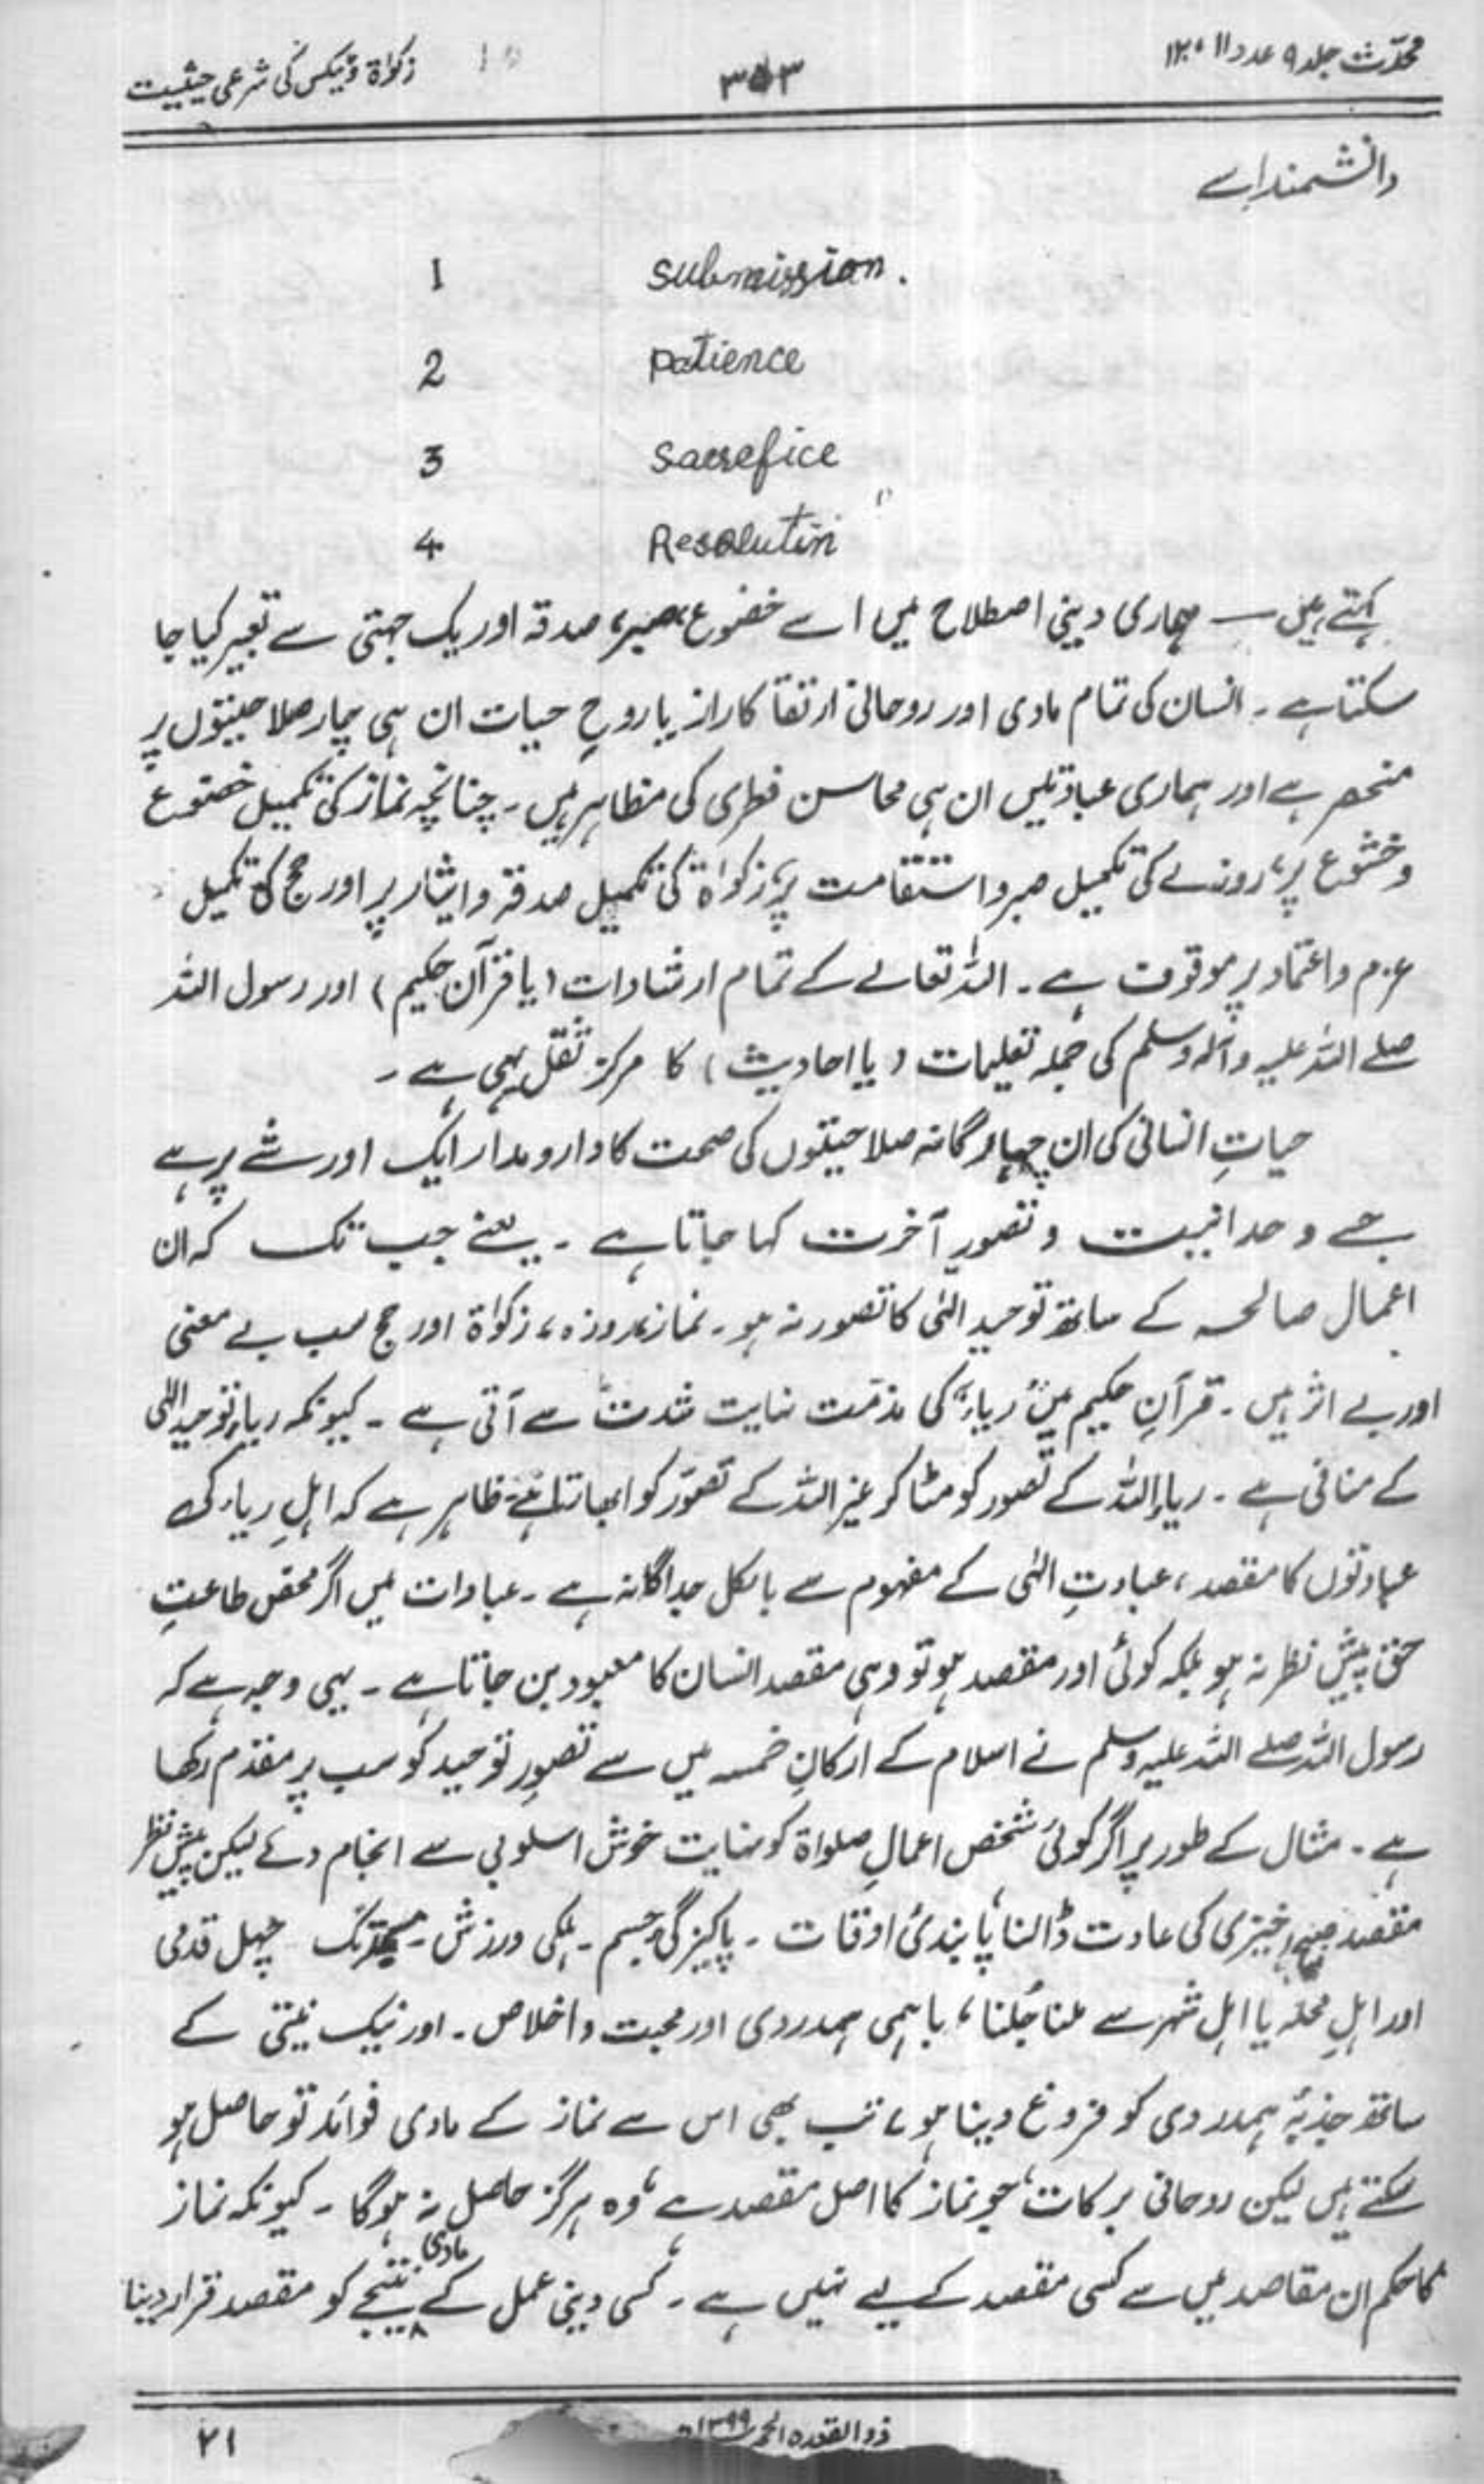 محدّث جلد ۹ عدد ۱۱، ۱۲
۳۵۳
زکوٰۃ و ٹیکس کی شرعی حیثیت
دانشمند اسے
1 submission.
2 patience
3 sacrefice
4 Resolutin "
کہتے ہیں ــ ہماری دینی اصطلاح میں اسے خضوع، صبر، صدقہ اور یک جہتی سے تعبیر کیا جا
سکتا ہے ۔ انسان کی تمام مادی اور روحانی ارتقا کا راز یا روحِ حیات ان ہی چار صلاحیتوں پر
منحصر ہے اور ہماری عبادتیں ان ہی محاسن فطری کی مظاہر ہیں ۔ چنانچہ نماز کی تکمیل خضوع
و خشوع پر، روزے کی تکمیل صبر و استقامت پر، زکوٰۃ کی تکمیل صدقہ و ایثار پر اور حج کی تکمیل
عزم و اعتماد پر موقوف ہے ۔ اللہ تعالےٰ کے تمام ارشادات (یا قرآن حکیم) اور رسول اللہ
صلے اللہ علیہ وآلہ وسلم کی جملہ تعلیمات (یا احادیث) کا مرکز ثقل یہی ہے ۔
حیاتِ انسانی کی ان چہارگانہ صلاحیتوں کی صحت کا دارومدار ایک اور شے پر ہے
جسے وحدانیت و تصورِ آخرت کہا جاتا ہے ۔ یعنے جب تک کہ ان
اعمال صالحہ کے ساتھ توحید الٰہی کا تصور نہ ہو ۔ نماز، روزہ، زکوٰۃ اور حج سب بے معنی
اور بے اثر ہیں ۔ قرآنِ حکیم میں "ریاء" کی مذمّت نہایت شدت سے آتی ہے ۔ کیونکہ ریاء توحید الٰہی
کے منافی ہے ۔ ریاء اللہ کے تصور کو مٹا کر غیر اللہ کے تصوّر کو ابھارتا ہے ظاہر ہے کہ اہلِ ریاء کی
عبادتوں کا مقصد، عبادتِ الٰہی کے مفہوم سے بالکل جداگانہ ہے ۔ عبادات میں اگر محض طاعتِ
حق پیش نظر نہ ہو بلکہ کوئی اور مقصد ہو تو وہی مقصد انسان کا معبود بن جاتا ہے ۔ یہی وجہ ہے کہ
رسول اللہ صلے اللہ علیہ وسلم نے اسلام کے ارکانِ خمسہ میں سے تصورِ توحید کو سب پر مقدّم رکھا
ہے ۔ مثال کے طور پر اگر کوئی شخص اعمالِ صلواۃ کو نہایت خوش اسلوبی سے انجام دے لیکن پیش نظر
مقصد صبح خیزی کی عادت ڈالنا، پابندیٔ اوقات ۔ پاکیزگیٔ جسم ۔ ہلکی ورزش ۔ چہل قدمی
اور اہلِ محلہ یا اہل شہر سے ملنا جُلنا، باہمی ہمدردی اور محبت و اخلاص ۔ اور نیک نیتی کے
ساتھ جذبۂ ہمدردی کو فروغ دینا ہو، تب بھی اس سے نماز کے مادی فوائد تو حاصل ہو
سکتے ہیں لیکن روحانی برکات، جو نماز کا اصل مقصد ہے، وہ ہرگز حاصل نہ ہوگا ۔ کیونکہ نماز
کا حکم ان مقاصد میں سے کسی مقصد کے لیے نہیں ہے ۔ کسی دینی عمل کے مادی نتیجے کو مقصد قرار دینا
ذوالقعدہ الحرام ۱۳۹۹ھ
۲۱